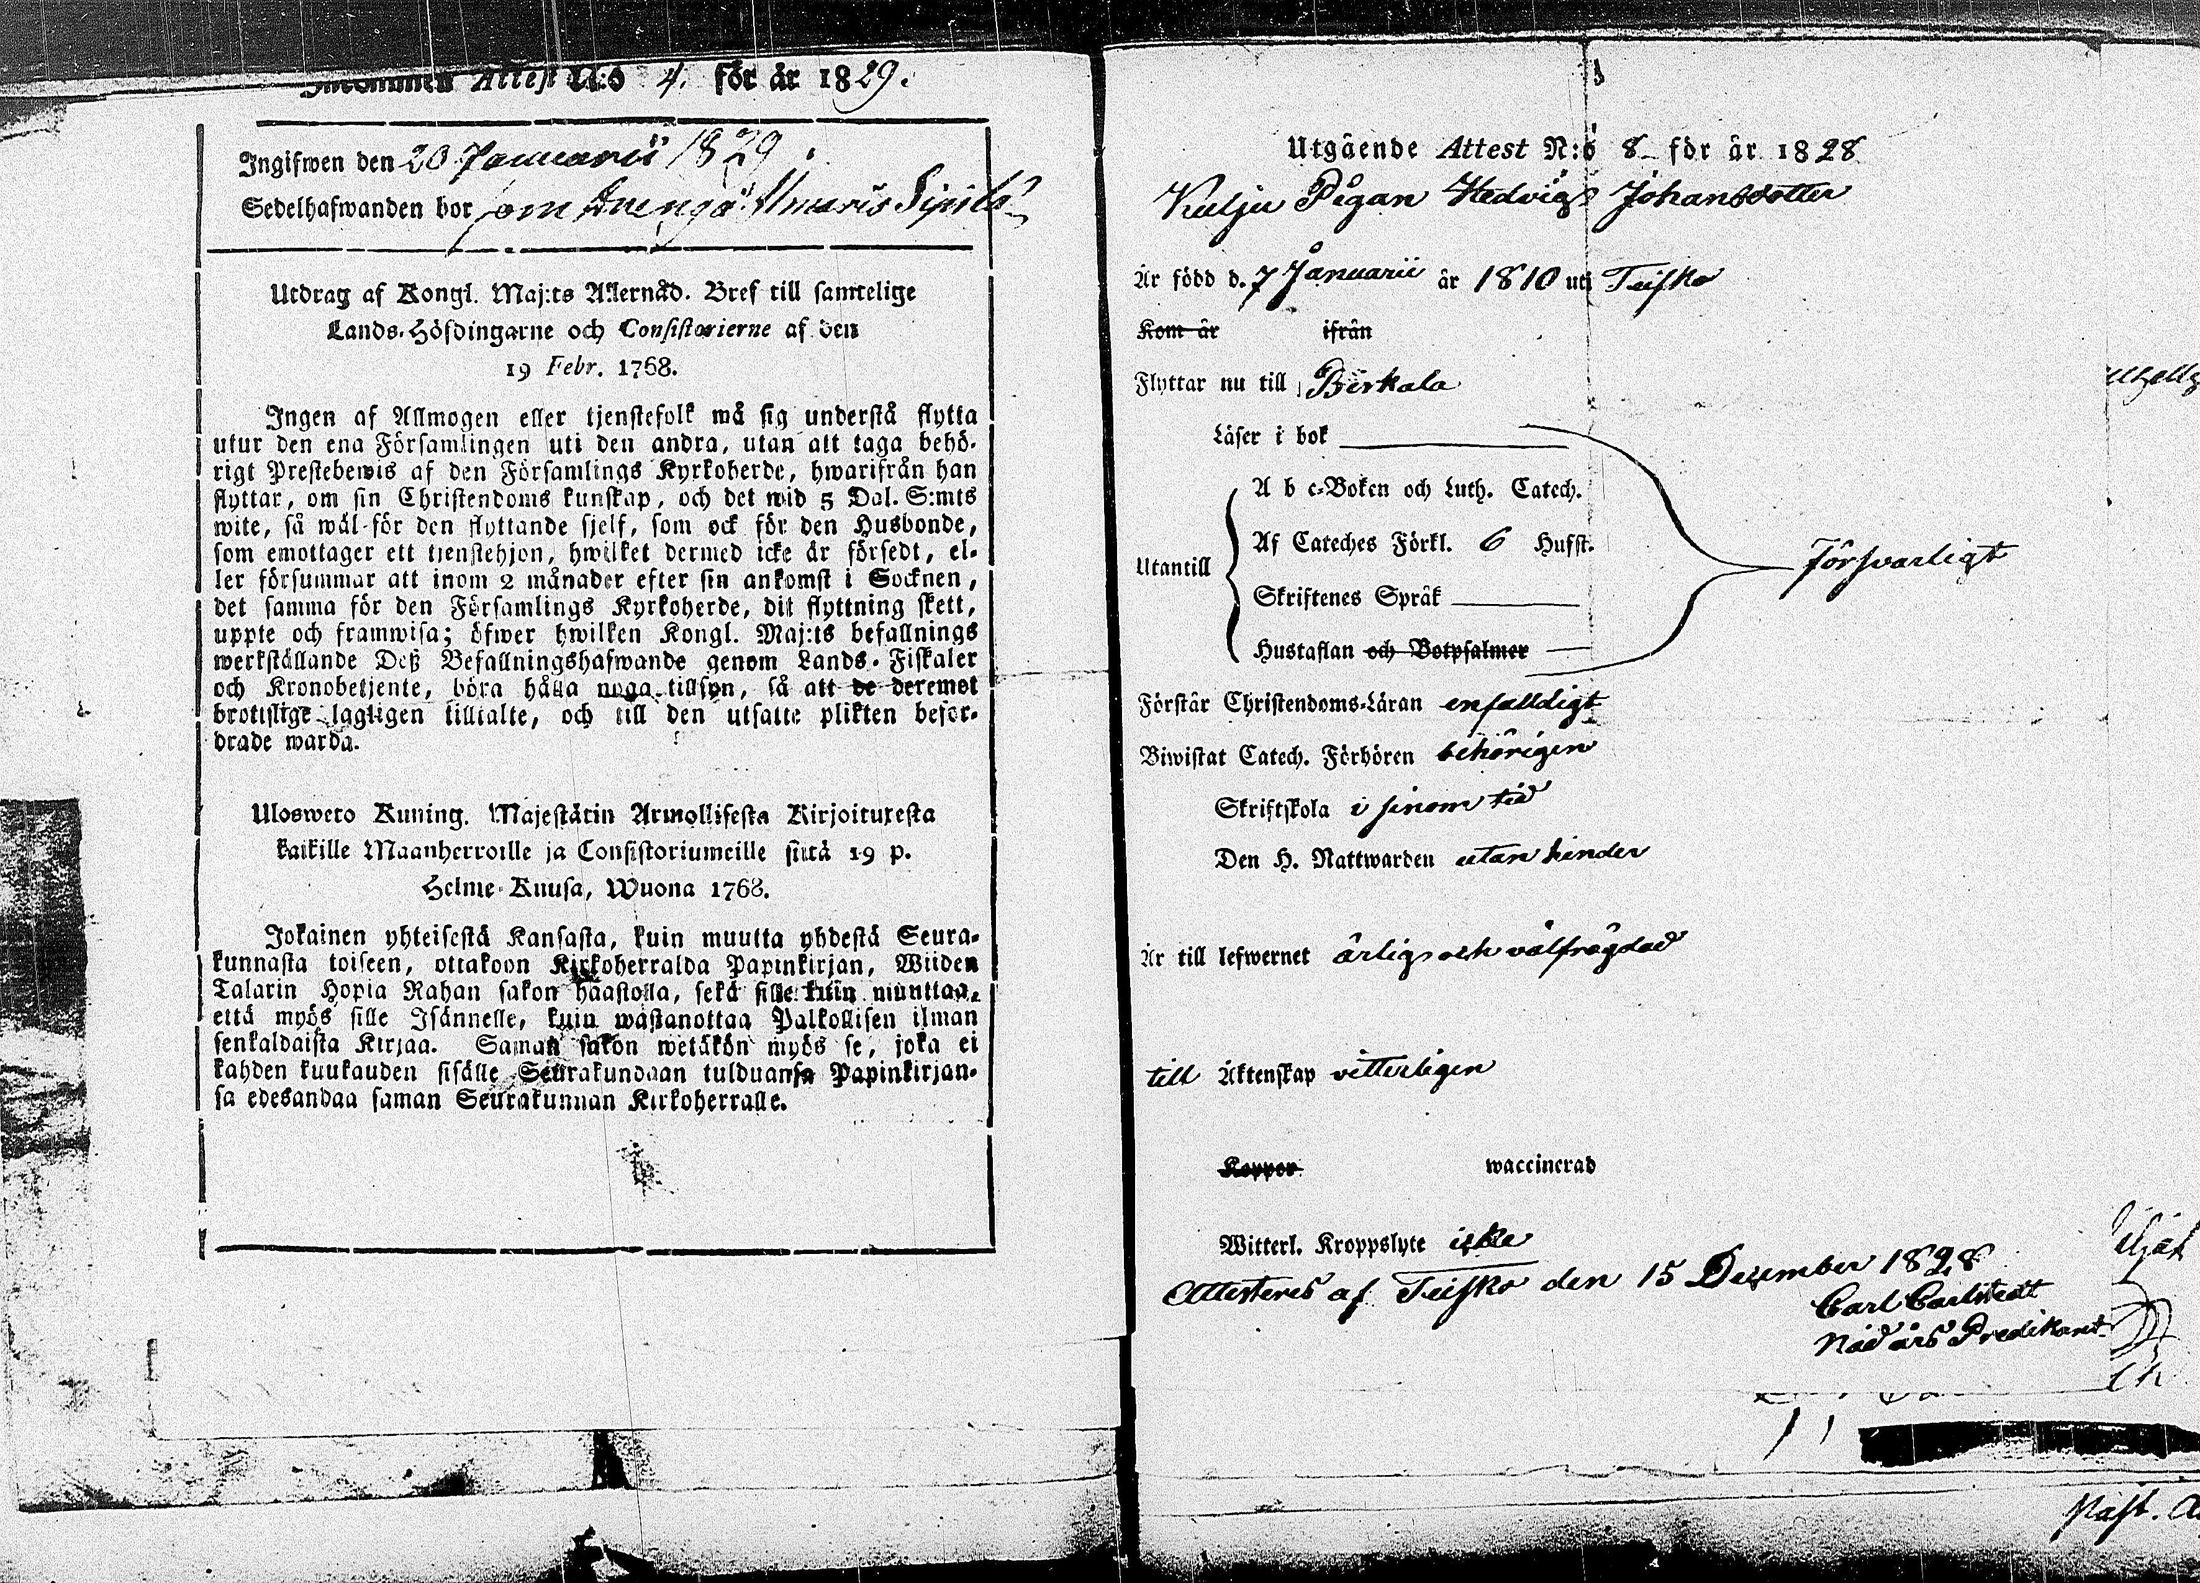 Inkommen Attest N:o 4. för år 1829.
Ingifwen den 20 Januarii 1829
Sedelhafwanden bor som Drengö Anuris Sipilä
Utdrag af Kongl. Maj:ts Allernåd. Bref till samtelige
Lands-Höfdingarne och Consistorierne af den
19 Febr. 1768.
Ingen af Allmogen eller tjenstefolk må sig understå flytta
utur den ena Församlingen uti den andra, utan att taga behö-
rigt Prestebewis af den Församlings Kyrkoherde, hwarifrån han
flyttar, om sin Christendoms kunskap, och det wid 5 Dal. S:mts
wite, så wäl för den flyttande sjelf, som ock för den Husbonde,
som emottager ett tjenstehjon, hwilket dermed icke är försedt, el-
ler försummar att inom 2 månader efter sin ankomst i Socknen,
det samma för den Församlings Kyrkoherde, dit flyttning skett,
uppte och framwisa; öfwer hwilken Kongl. Maj:ts befallnings
werkställande Deß Befallningshafwande genom Lands-Fiskaler
och Kronobetjente, böra hålla noga tillsyn, så att de deremot
brottslige lagligen tilltalte, och till den utsatte plikten befor-
drade warda.
Ulosweto Kuning. Majestätin Armollisesta Kirjoituxesta
kaikille Maanherroille ja Consistoriumeille siitä 19 p.
Helme-Kuusa, Wuona 1768.
Jokainen yhteisestä Kansasta, kuin muutta yhdestä Seura-
kunnasta toiseen, ottakoon Kirkoherralda Papinkirjan, Wiiden
Talarin Hopia Rahan sakon haastolla, sekä sille kuin muuttaa,
että myös sille Isännelle, kuin wastanottaa Palkollisen ilman
senkaldaista Kirjaa. Saman sakon wetäkön myös se, joka ei
kahden kuukauden sisälle Seurakundaan tulduansa Papinkirjan-
sa edesandaa saman Seurakunnan Kirkoherralle.
Utgående Attest N:o 8 för år 1828
Kulju Pigan Hedvig Johansdotter
Är född d. 7 Januarii år 1810 uti Teisko
Kom år ifrån
Flyttar nu till Birkala
Läser i bok
A b c-Boken och Luth. Catech.
Utantill Af Cateches Förkl. 6 Hufst. Försvarligt
Skriftenes Språk
Hustaflan och Botpsalmer
Förstår Christendoms-Läran enfalldigt
Biwistat Catech. Förhören behörigen
Skriftskola i sinom tid
Den H. Nattwarden utan hinder
Är till lefwernet ärlig och välfrägdad
till Äktenskap vitterligen
Koppor waccinerad
Witterl. Kroppslyte icke
Attesteres af Teisko den 15 December 1828
Carl Carlstedt
Nådårs Predikant
Past.